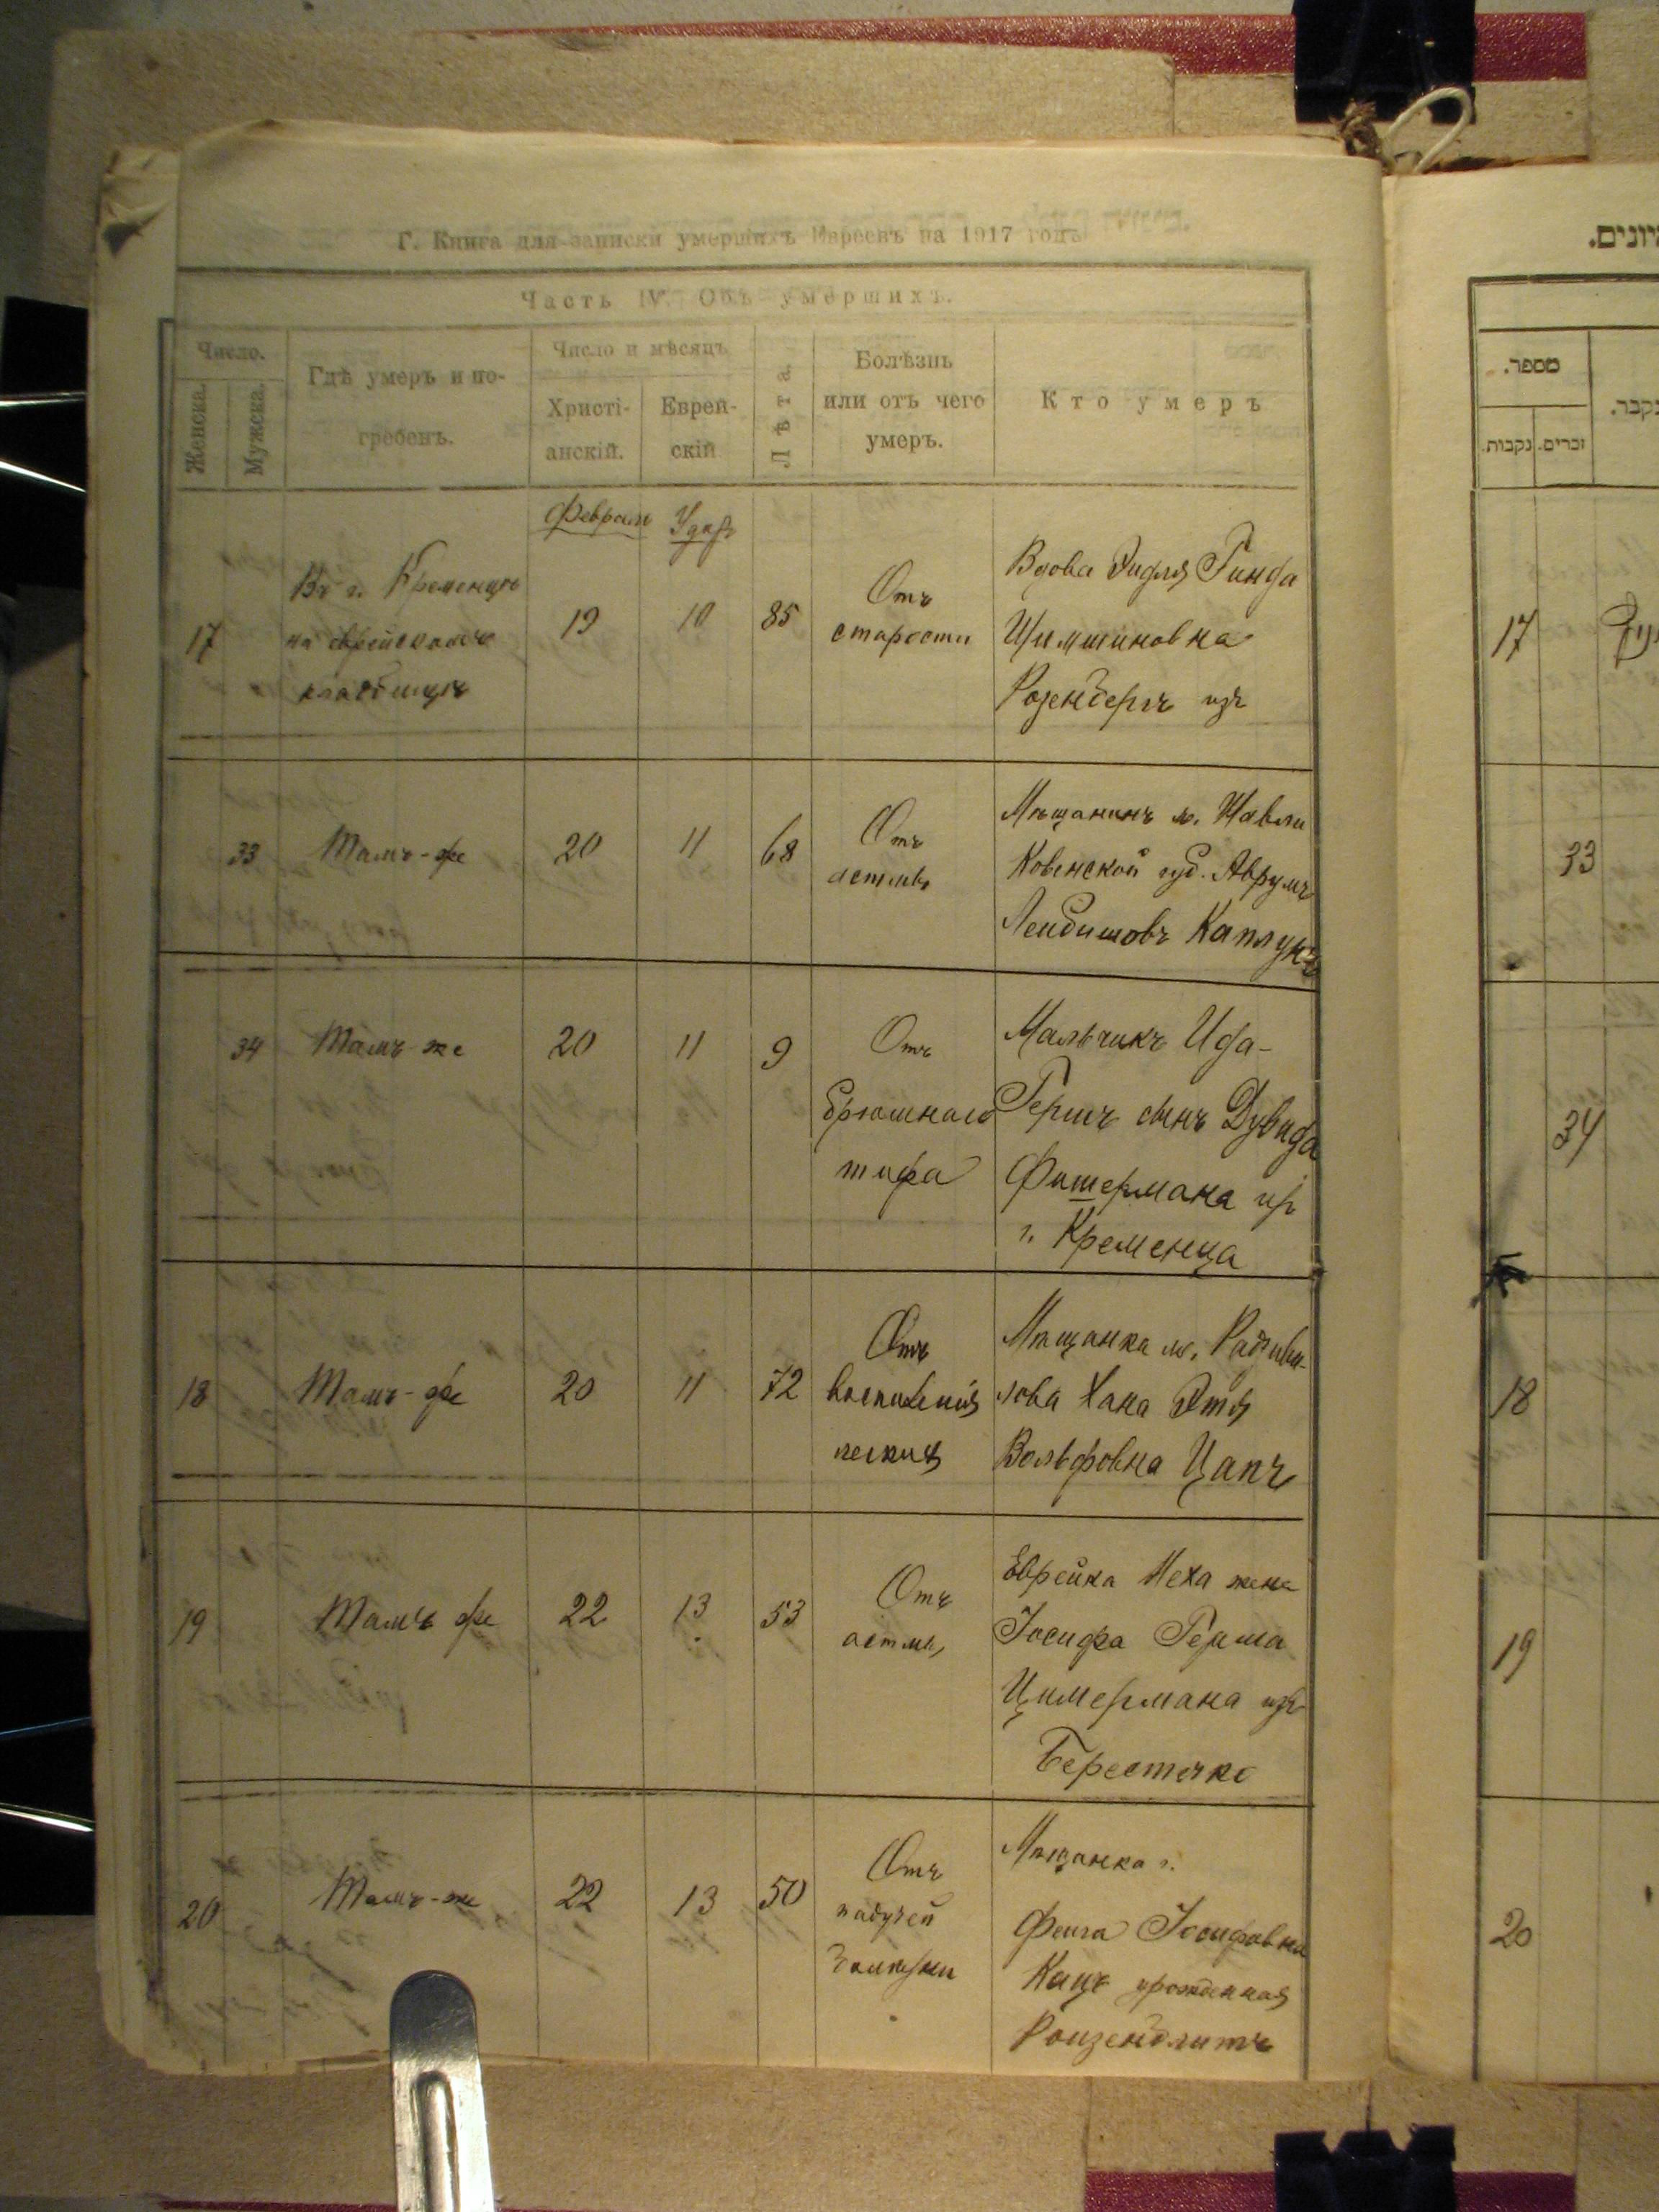 Г. Книга для записки умершихъ Евреевъ на 1917 годъ
Часть IV. Объ умершихъ.
Число.
Женска.
Мужеска.
Гдѣ умеръ и по-
гребенъ.
Число и мѣсяцъ
Христі-
анскій.
Еврей-
скій
Лѣта.
Болѣзнь
или отъ чего
умеръ.
Кто умеръ
Февраль
17
Въ г. Кременцѣ
на еврейскомъ
кладбищѣ
19
10
85
Отъ
старости
Вдова Эидля Гинда
Шимшиновна
Розенбергъ изъ
33
Тамъ-же
20
11
68
Отъ
астмы
Мѣщанинъ м. Шавли
Ковенской губ. Аврумъ
Лейбишовъ Капланъ
34
Тамъ-же
20
11
9
Отъ
брюшнаго
тифа
Мальчикъ Ида-
Гершъ сынъ Дувида
Фишермана изъ
г. Кременца
18
Тамъ-же
20
11
72
Отъ
воспаленія
легкихъ
Мѣщанка м. Радзиви-
лова Хана Этя
Вольфовна Цапъ
19
Тамъ же
22
13
53
Отъ
астмы
Еврейка Неха жена
Іосифа Герша
Цимермана изъ
Берестечко
20
Тамъ-же
22
13
50
Отъ
падучей
болѣзни
Мѣщанка г.
Фейга Іосифовна
Кацъ урожденная
Роизенблитъ
מספר.
נקבות.
זכרים.
17
33
34
18
19
20